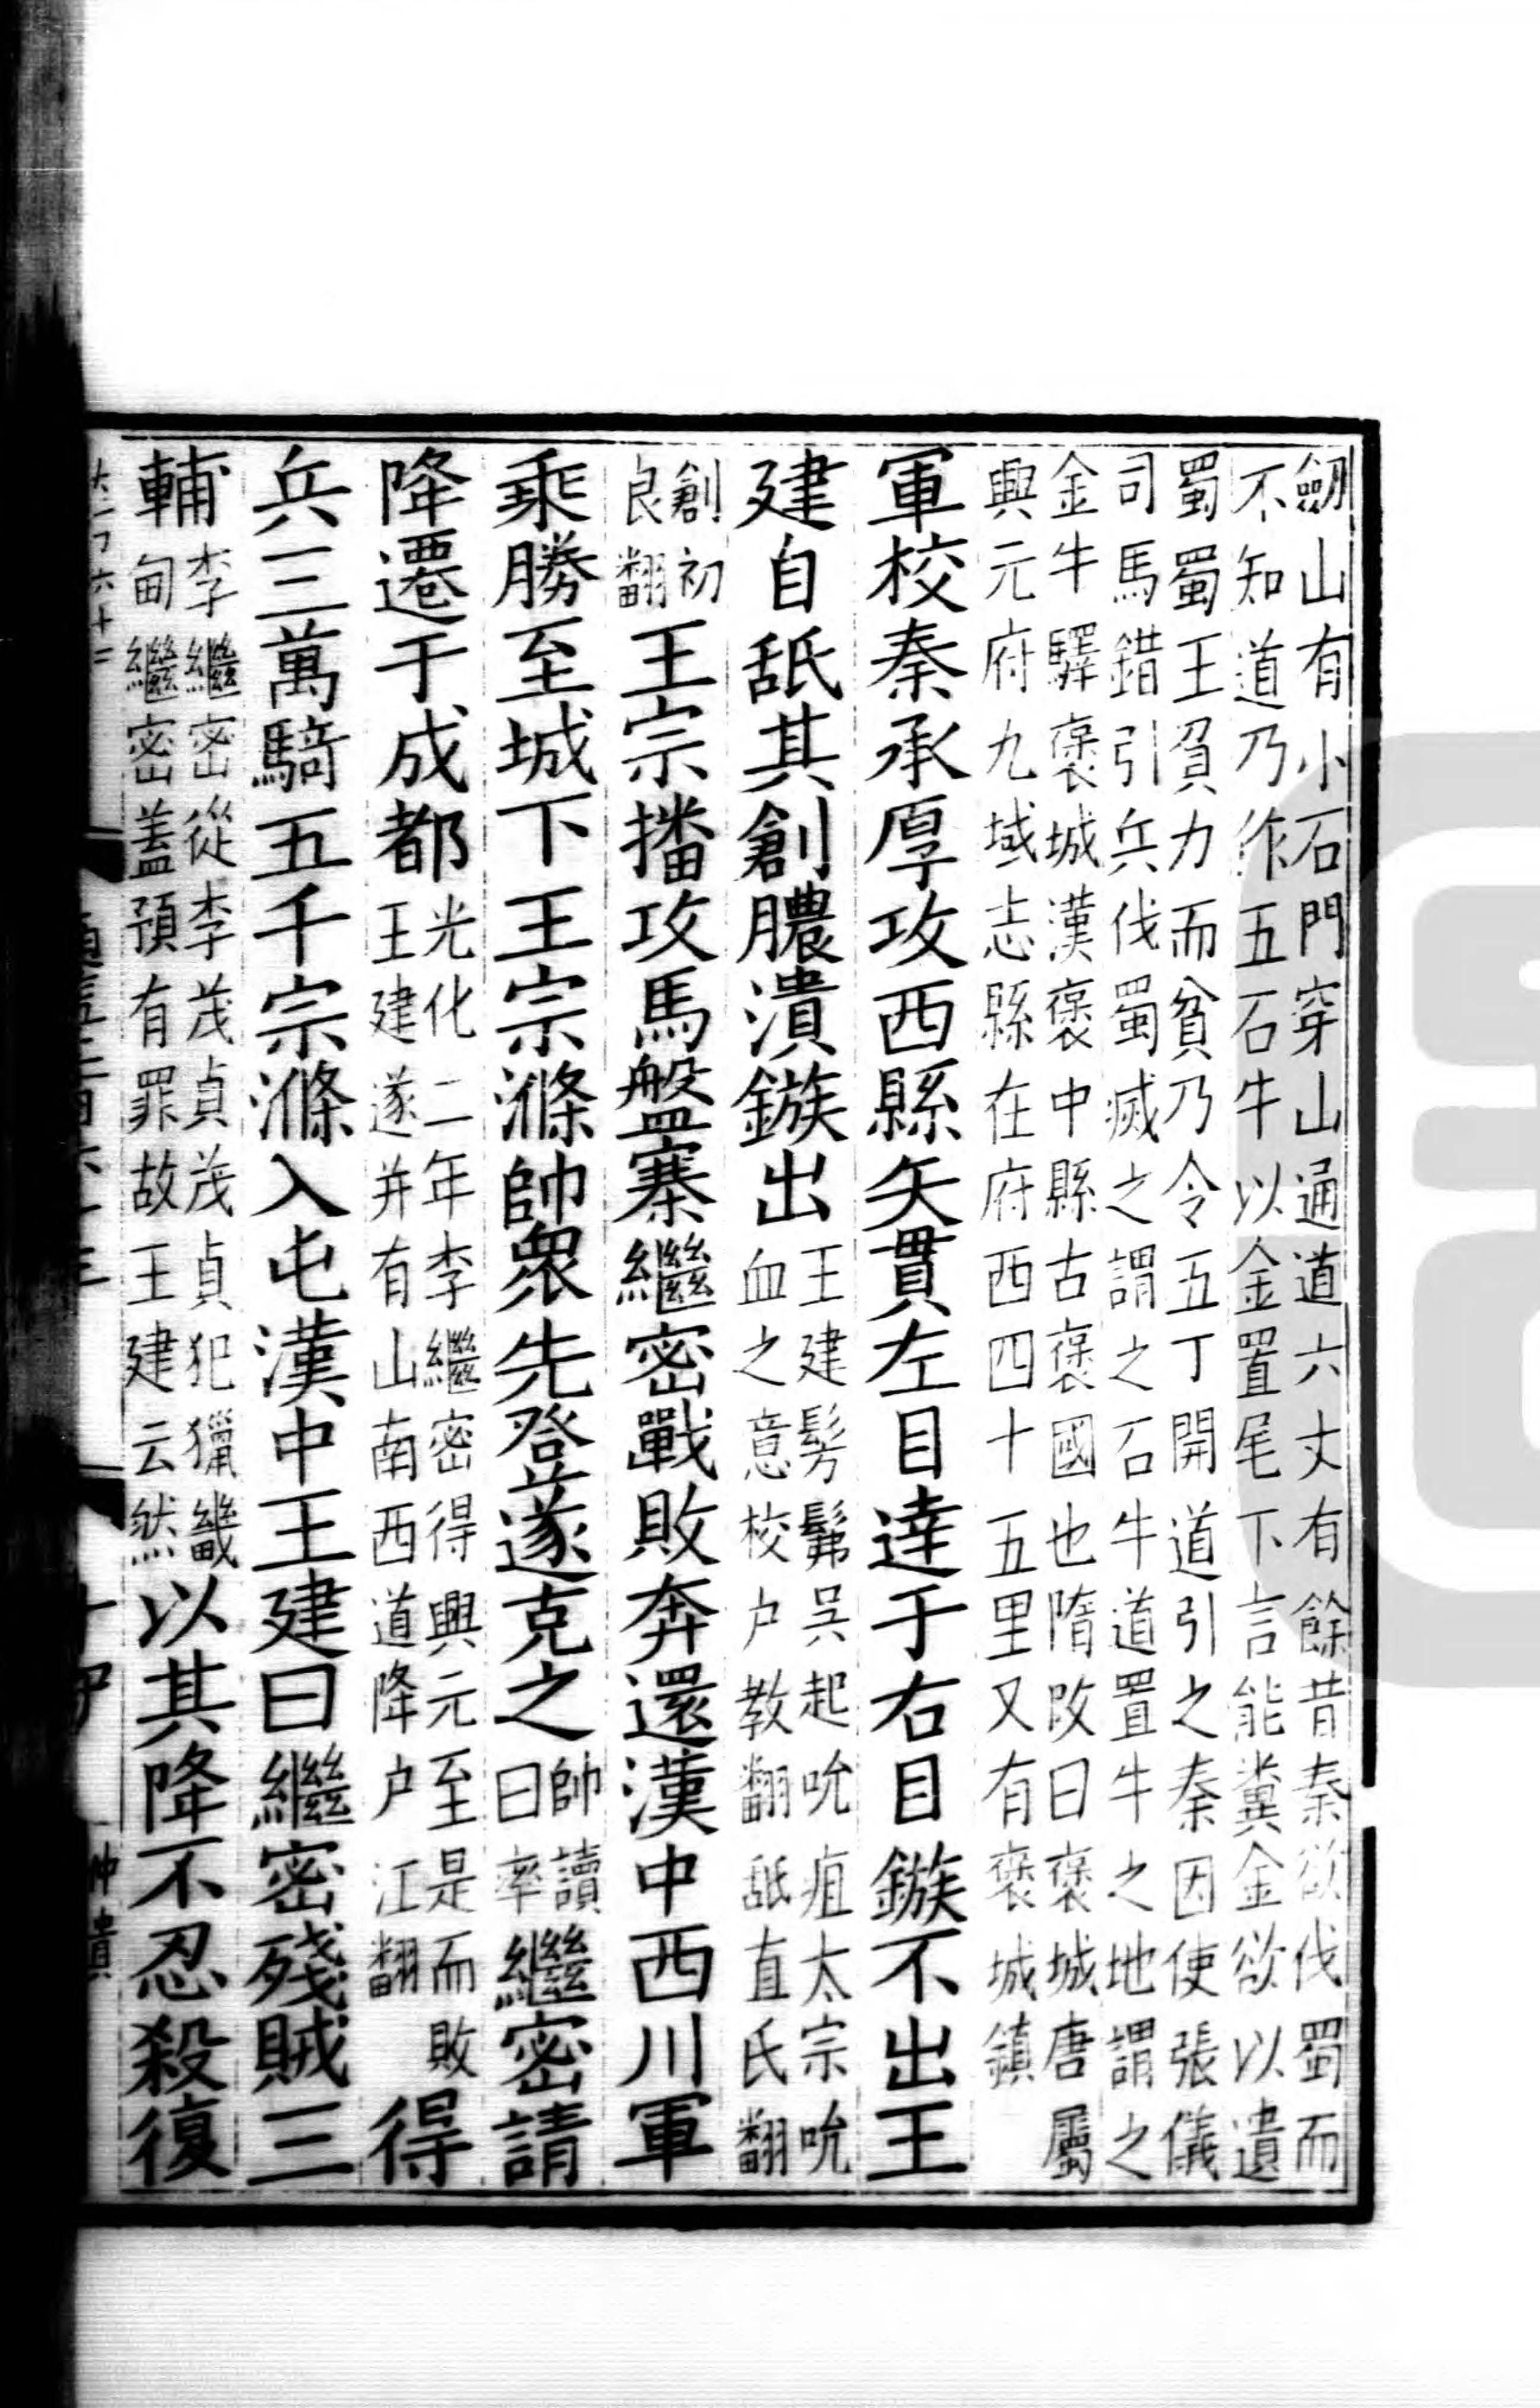 劒山有小石門穿山通道六丈有餘昔秦欲伐蜀而
不知道乃作五石牛以金置尾下言能糞金欲以遺
蜀蜀王貧力而貧乃令五丁開道引之秦因使張儀
司馬錯引兵伐蜀滅之謂之石牛道置牛之地謂之
金牛驛褒城漢褒中縣古褒國也隋改曰褒城唐屬
興元府九域志縣在府西四十五里又有褒城鎮
軍校秦承厚攻西縣矢貫左目達于右目鏃不出王
建自舐其創膿潰鏃出
王建髣髴吳起吮疽太宗吮
血之意校户教翻舐直氏翻
創初
良翻
王宗播攻馬盤寨繼密戰敗奔還漢中西川軍
乘勝至城下王宗滌帥衆先登遂克之
帥讀
曰率
繼密請
降遷于成都
光化二年李繼密得興元至是而敗
王建遂并有山南西道降户江翻
得
兵三萬騎五千宗滌入屯漢中王建曰繼密殘賊三
輔
李繼密從李茂貞茂貞犯獵畿
甸繼密蓋預有罪故王建云然
以其降不忍殺復